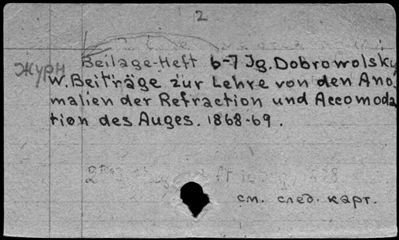 2
журн Beilage-Heft 6-7 Jg. Dobrowolsky
W. Beiträge zur Lehre von den Ano-
malien der Refraction und Accomoda
tion des Auges. 1868-69.
см. след. карт.